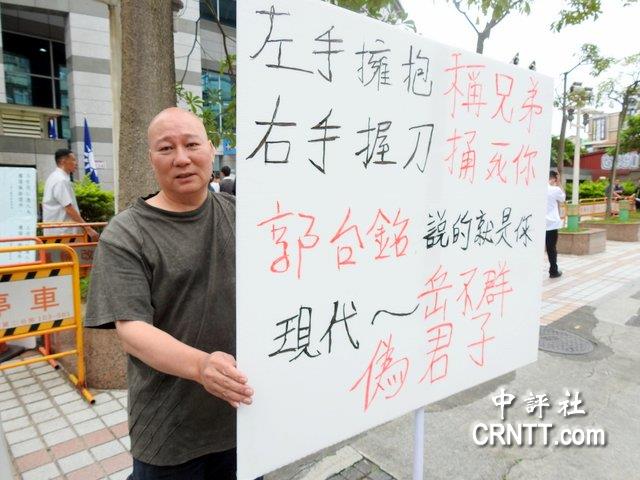 左手擁抱稱兄弟
右手握刀捅死你
郭台銘說的就是你
現代~岳不群
偽君子
停車
中評社
CRNTT.com